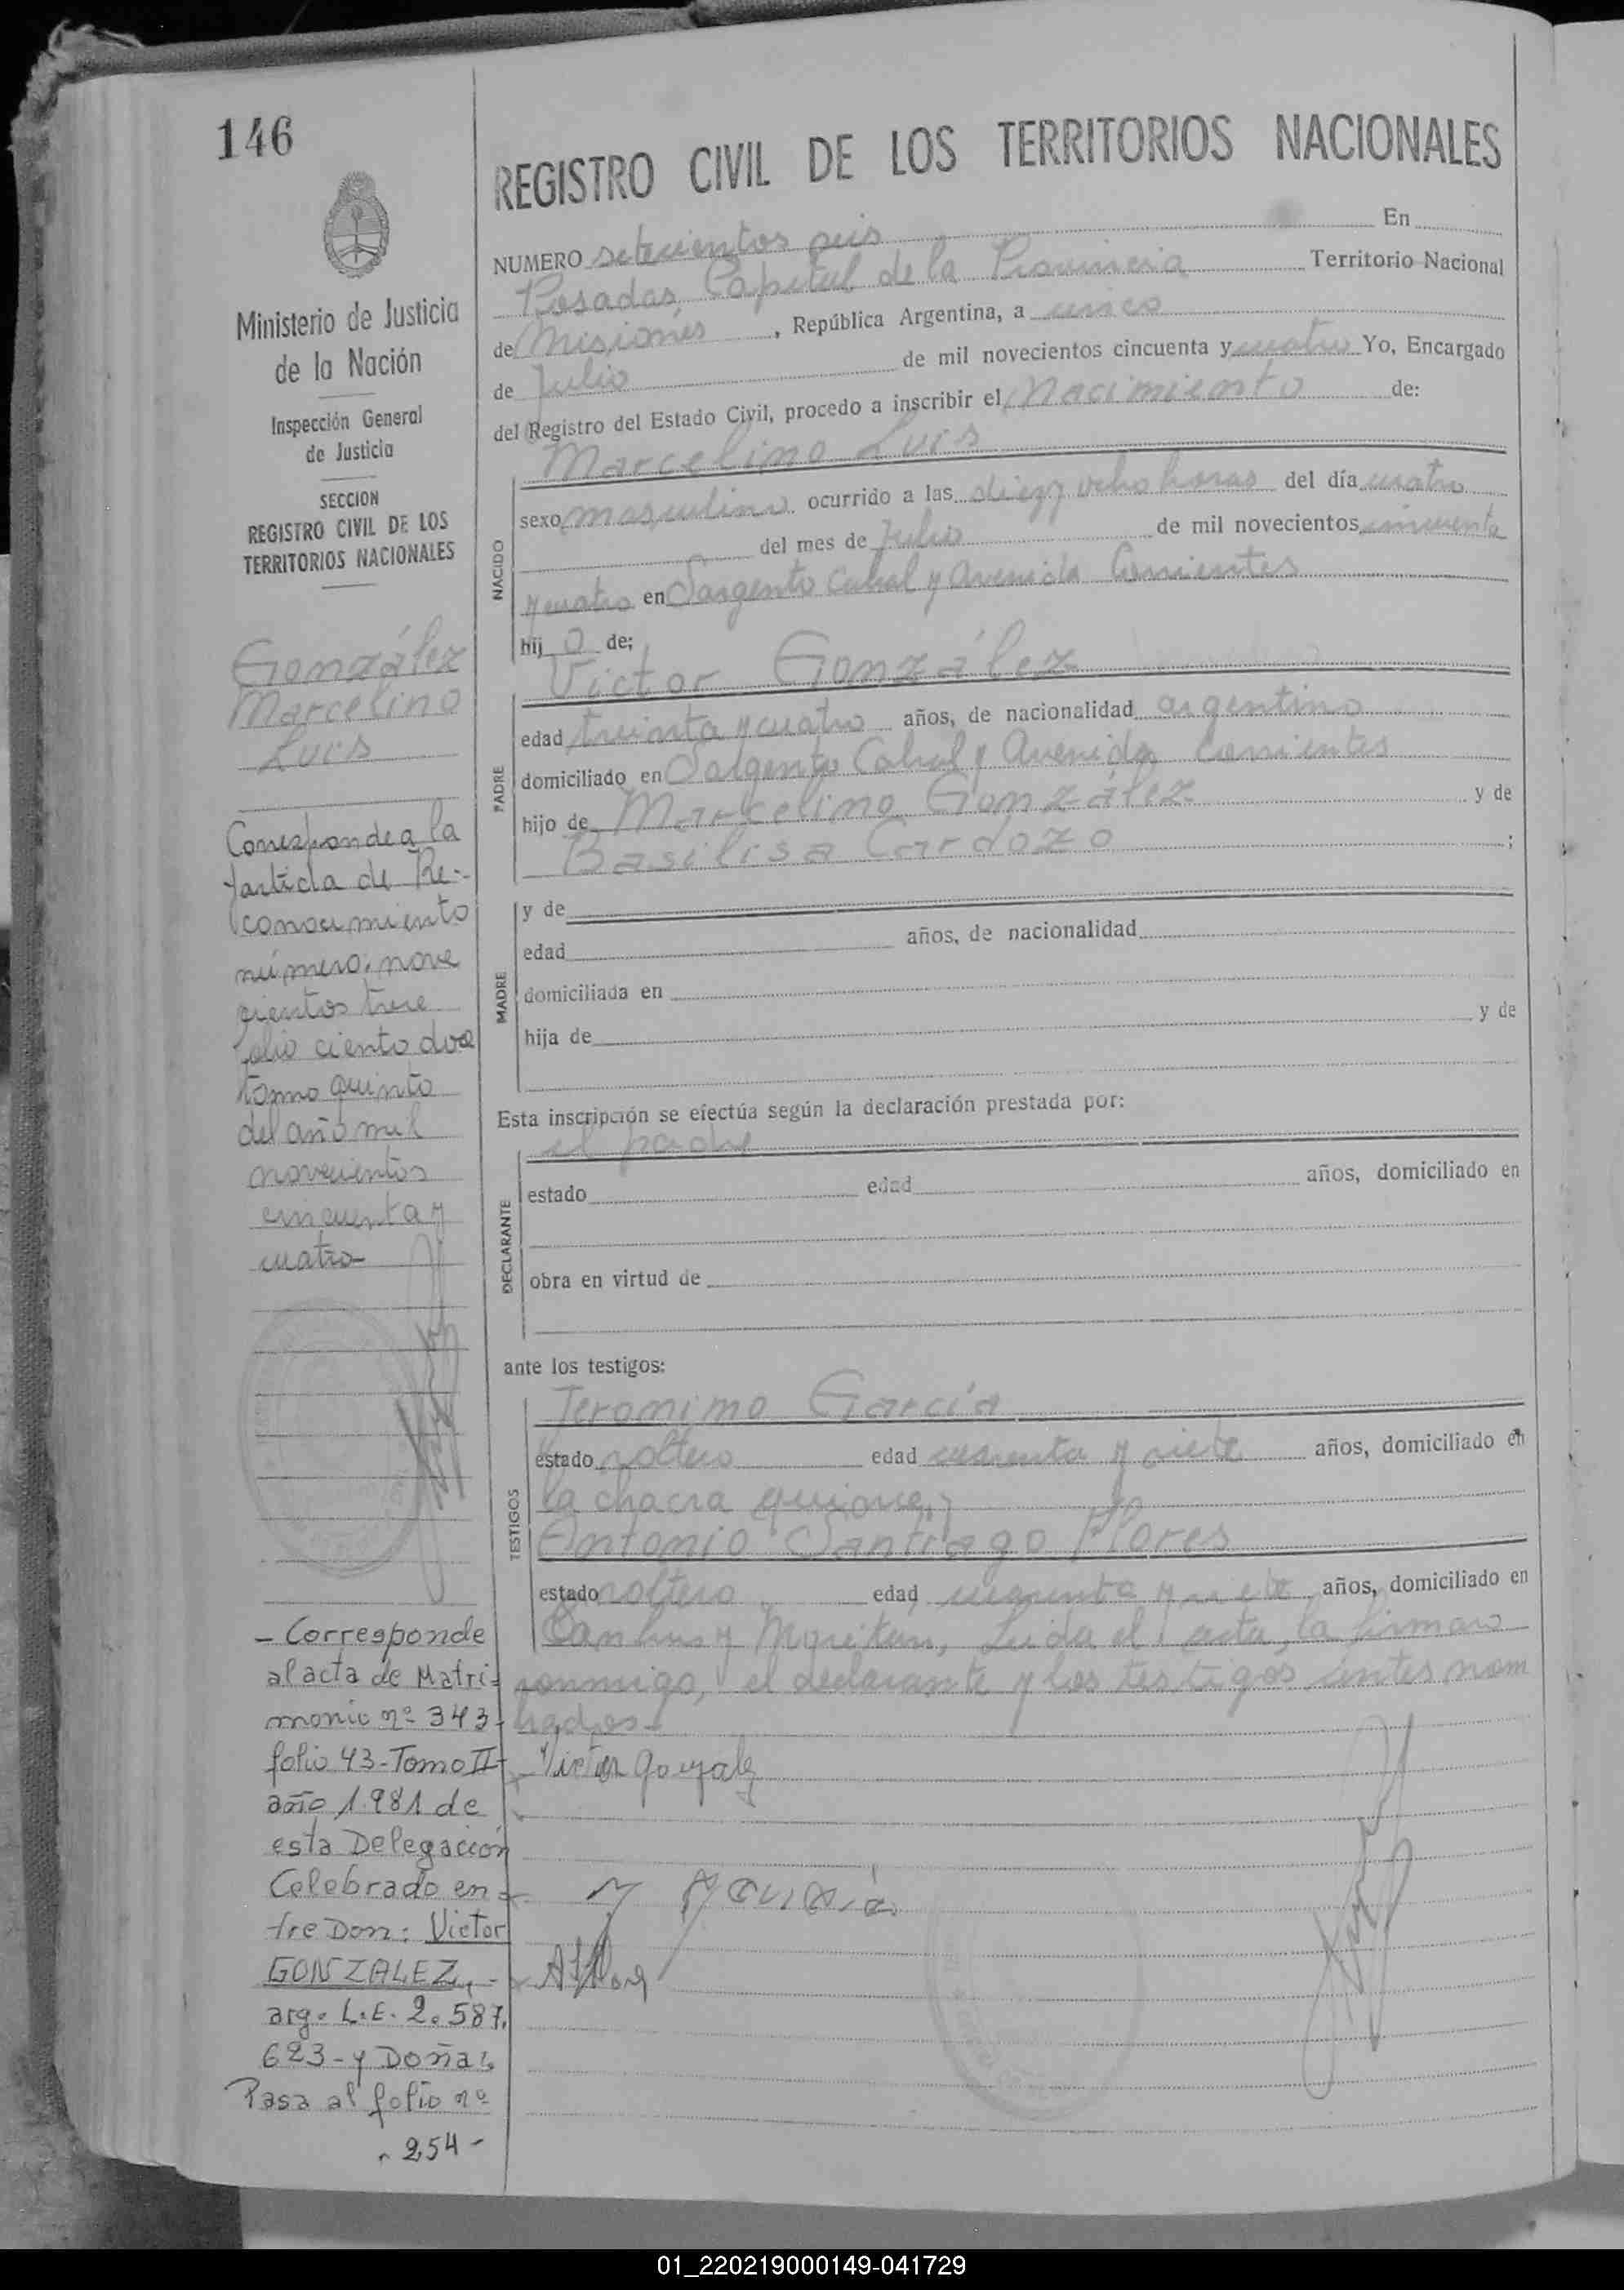 146
Ministerio de Justicia
de la Nación
Inspección General
de Justicia
SECCION
REGISTRO CIVIL DE LOS
TERRITORIOS NACIONALES
González
Marcelino
Luis
Corresponde a la
partida de Re-
conocimiento
número nove
cientos trece
folio ciento doce
tomo quinto
del año mil
novecientos
cincuenta y
cuatro
- Corresponde
al acta de Matri-
monio nº 343-
folio 43-Tomo II-
año 1.981 de
esta Delegación
Celebrado en-
tre Don: Victor
GONZALEZ,-
arg. L.E. 2.587.
623- y Doña:
Pasa al folio nº
- 254 -
REGISTRO CIVIL DE LOS TERRITORIOS NACIONALES
NUMERO setecientos seis En
Posadas Capital de la Provincia Territorio Nacional
de Misiones, República Argentina, a cinco
de Julio de mil novecientos cincuenta y cuatro Yo, Encargado
del Registro del Estado Civil, procedo a inscribir el Nacimiento de:
Marcelino Luis
NACIDO
sexo masculino ocurrido a las diez y ocho horas del día cuatro
del mes de Julio de mil novecientos cincuenta
y cuatro en Sargento Cabral y Avenida Corrientes
hij o de;
Victor González
PADRE
edad treinta y cuatro años, de nacionalidad argentino
domiciliado en Sargento Cabral y Avenida Corrientes
hijo de Marcelino González y de
Basilisa Cardozo ;
MADRE
y de
edad años, de nacionalidad
domiciliada en
hija de y de
Esta inscripción se efectúa según la declaración prestada por:
el padre
DECLARANTE
estado edad años, domiciliado en
obra en virtud de
ante los testigos:
Jeronimo García
TESTIGOS
estado soltero edad cuarenta y siete años, domiciliado en
la chacra quince y
Antonio Santiago Flores
estado soltero edad cuarenta y siete años, domiciliado en
y Leida el acta, la firmaro
conmigo, el declarante y los testigos antes nom
brados-
Victor Gonzalez
01_220219000149-041729